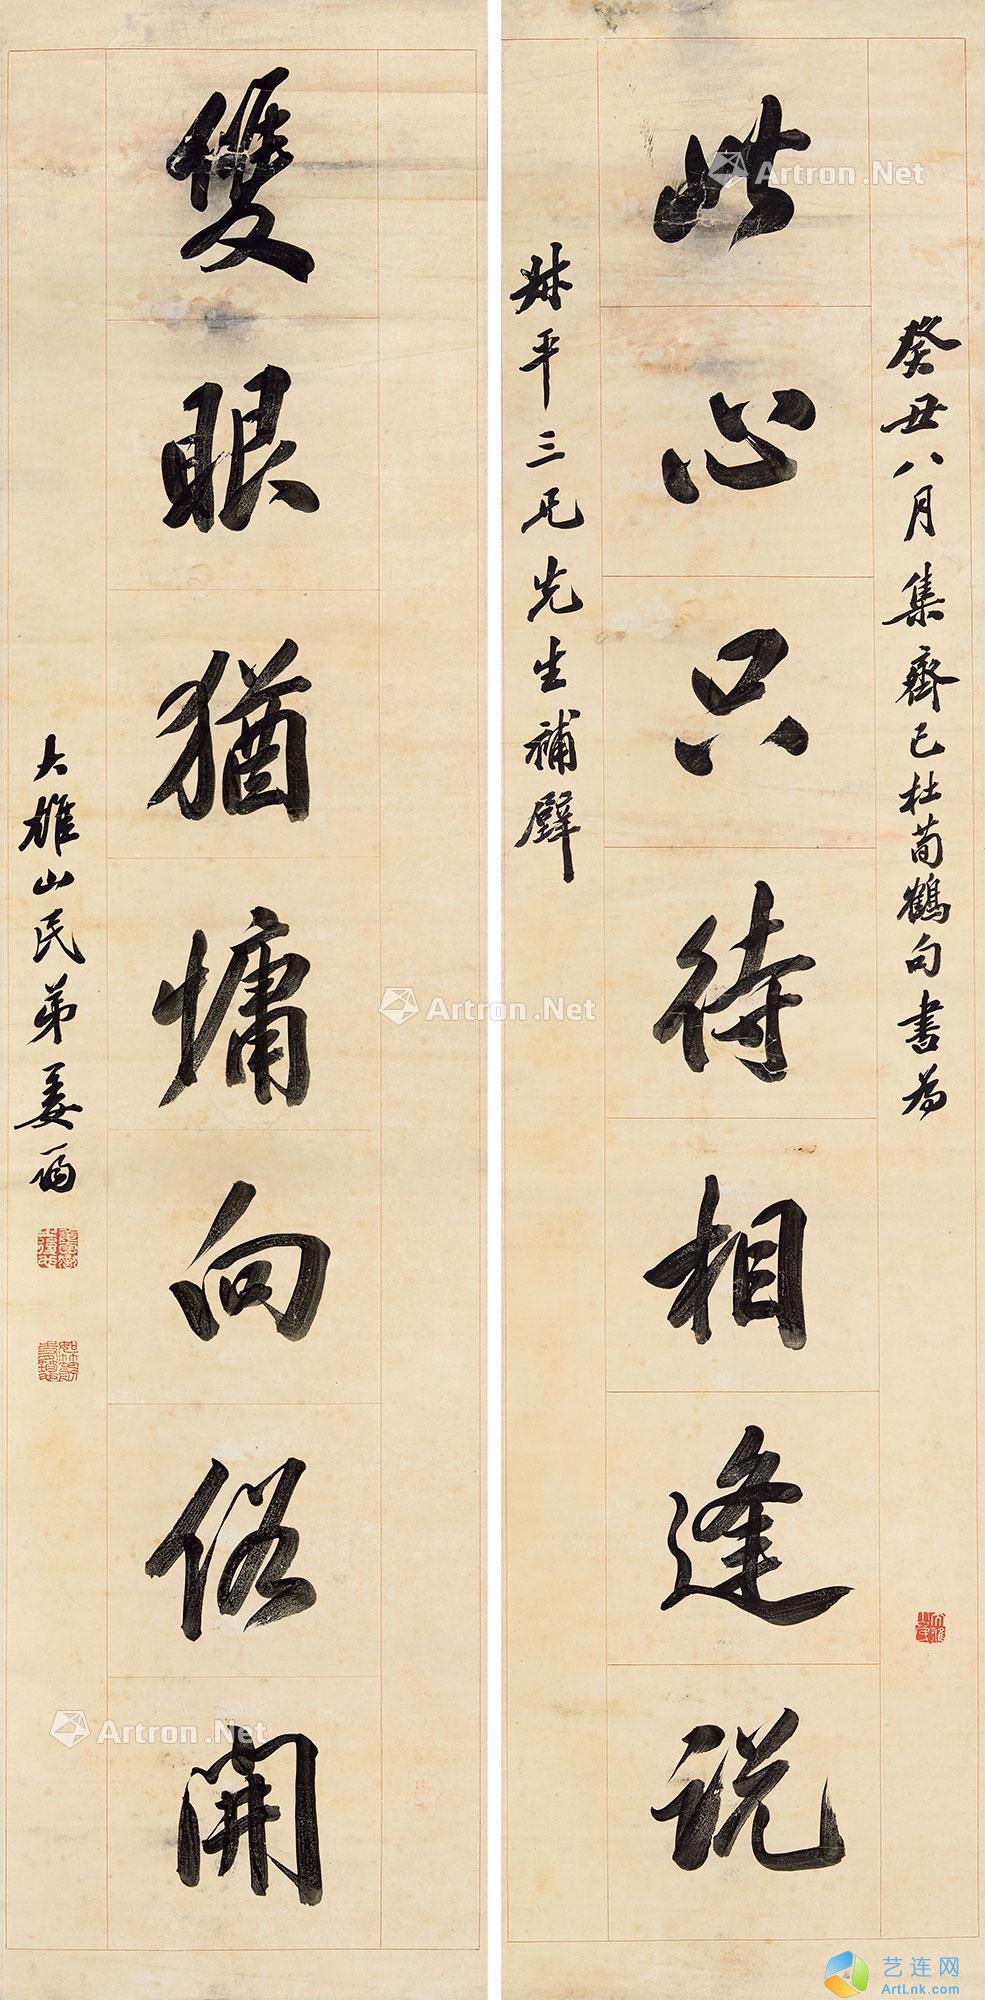 癸丑八月集齊己杜荀鶴句書為
此心只待相逢說
平三兄先生補壁
雙眼猶慵向俗開
大雄山民弟姜
Artron.Net
Artron.Net
Artron.Net
Artron.Net
艺连网
ArtLnk.com